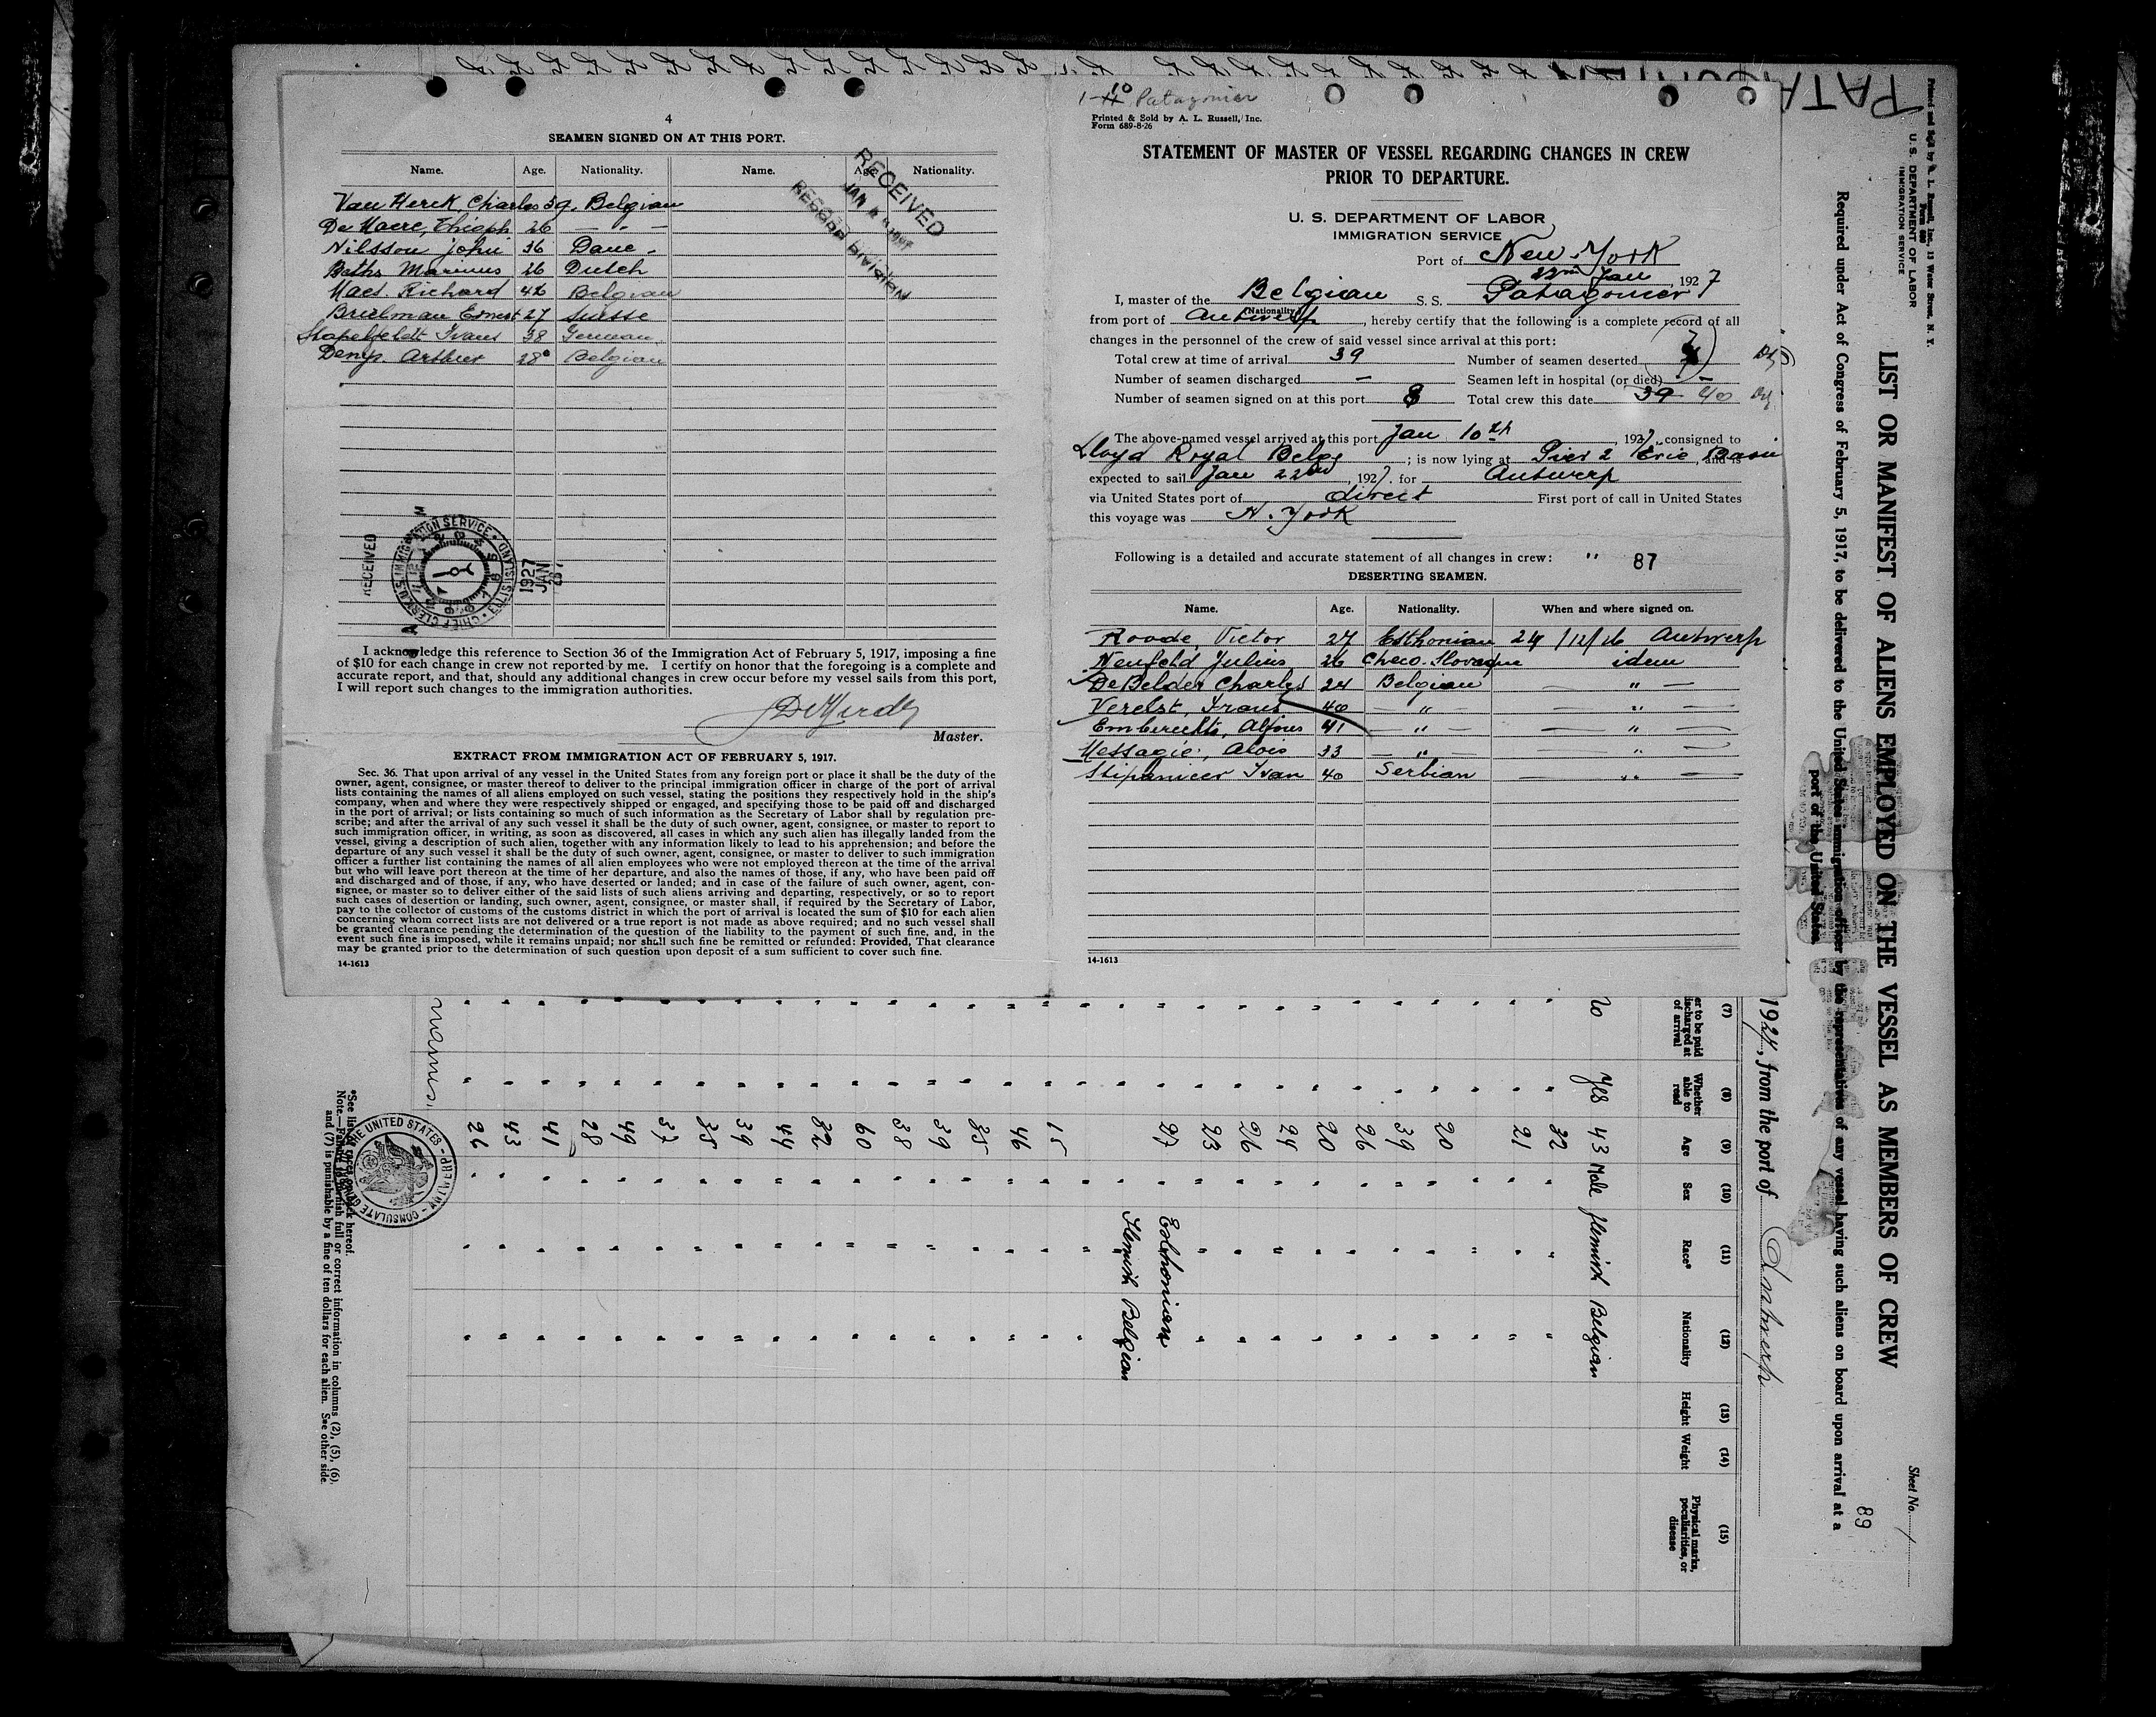 4
SEAMEN SIGNED ON AT THIS PORT.
Name. Age. Nationality. Name. Age. Nationality.
Van Herck, Charles 39. Belgian
De Maere, 26 — " —
Nilsson John 36 Dane -
Baths Marinus 26 Dutch
Maes. Richard 42 Belgian
Brielman Ernest 27 Suisse
Stapelfeldt Frans 38 German
Denys. Arthur 28 Belgian
RECEIVED
JAN
RECORD DIVISION
RECEIVED
CHIEF CLERK U.S. IMMIGRATION SERVICE • ELLIS ISLAND
1927
JAN
I acknowledge this reference to Section 36 of the Immigration Act of February 5, 1917, imposing a fine
of $10 for each change in crew not reported by me. I certify on honor that the foregoing is a complete and
accurate report, and that, should any additional changes in crew occur before my vessel sails from this port,
I will report such changes to the immigration authorities.
Master.
EXTRACT FROM IMMIGRATION ACT OF FEBRUARY 5, 1917.
Sec. 36. That upon arrival of any vessel in the United States from any foreign port or place it shall be the duty of the
owner, agent, consignee, or master thereof to deliver to the principal immigration officer in charge of the port of arrival
lists containing the names of all aliens employed on such vessel, stating the positions they respectively hold in the ship's
company, when and where they were respectively shipped or engaged, and specifying those to be paid off and discharged
in the port of arrival; or lists containing so much of such information as the Secretary of Labor shall by regulation pre-
scribe; and after the arrival of any such vessel it shall be the duty of such owner, agent, consignee, or master to report to
such immigration officer, in writing, as soon as discovered, all cases in which any such alien has illegally landed from the
vessel, giving a description of such alien, together with any information likely to lead to his apprehension; and before the
departure of any such vessel it shall be the duty of such owner, agent, consignee, or master to deliver to such immigration
officer a further list containing the names of all alien employees who were not employed thereon at the time of the arrival
but who will leave port thereon at the time of her departure, and also the names of those, if any, who have been paid off
and discharged and of those, if any, who have deserted or landed; and in case of the failure of such owner, agent, con-
signee, or master so to deliver either of the said lists of such aliens arriving and departing, respectively, or so to report
such cases of desertion or landing, such owner, agent, consignee, or master shall, if required by the Secretary of Labor,
pay to the collector of customs of the customs district in which the port of arrival is located the sum of $10 for each alien
concerning whom correct lists are not delivered or a true report is not made as above required; and no such vessel shall
be granted clearance pending the determination of the question of the liability to the payment of such fine, and, in the
event such fine is imposed, while it remains unpaid; nor shall such fine be remitted or refunded: Provided, That clearance
may be granted prior to the determination of such question upon deposit of a sum sufficient to cover such fine.
14-1613
1-10 Patagonier
Printed & Sold by A. L. Russell, Inc.
Form 689-8-26
STATEMENT OF MASTER OF VESSEL REGARDING CHANGES IN CREW
PRIOR TO DEPARTURE.
U. S. DEPARTMENT OF LABOR
IMMIGRATION SERVICE
Port of New-York
22nd Jan, 1927
I, master of the Belgian S. S. Patagonier
(Nationality)
from port of Antwerp, hereby certify that the following is a complete record of all
changes in the personnel of the crew of said vessel since arrival at this port:
Total crew at time of arrival 39 Number of seamen deserted 7
Number of seamen discharged — Seamen left in hospital (or died) —
Number of seamen signed on at this port 8 Total crew this date 39 40
The above-named vessel arrived at this port Jan 10th, 1927, consigned to
Lloyd Royal Belge; is now lying at Pier 2 Erie Basin, and is
expected to sail Jan 22nd, 1927. for Antwerp
via United States port of direct First port of call in United States
this voyage was N. York
Following is a detailed and accurate statement of all changes in crew: " 87
DESERTING SEAMEN.
Name. Age. Nationality. When and where signed on.
Roode, Victor 27 Esthonian 24/12/26 Antwerp
Neufeld Julius 26 Checo. Slovaque idem
De Belder Charles 24 Belgian — " —
Verelst, Frans 40 — " — — " —
Embrechts, Alfons 41 — " — — " —
Messagie, Alois 33 — " — — " —
Ivan 40 Serbian — " —
14-1613
PATAGONIER
Printed and Sold by A. L. Russell, Inc., 13 Water Street, N. Y.
Form 689
U. S. DEPARTMENT OF LABOR
IMMIGRATION SERVICE
Sheet No. 1
89
LIST OR MANIFEST OF ALIENS EMPLOYED ON THE VESSEL AS MEMBERS OF CREW
Required under Act of Congress of February 5, 1917, to be delivered to the United States immigration officer by the representatives of any vessel having such aliens on board upon arrival at a
port of the United States
192, from the port of Antwerp
(7) (8) (9) (10) (11) (12) (13) (14) (15)
er to be paid
discharged at
of arrival
Whether
able to
read
Age
Sex
Race*
Nationality
Height
Weight
Physical marks,
peculiarities, or
disease
No Yes 43 Male Flemish Belgian
" " 32 " " "
" " 21 " " "
" " 20 " " "
" " 39 " " "
" " 26 " " "
" " 20 " " "
" " 24 " " "
" " 26 " " "
" " 23 " " "
" " 27 " Esthonian
Flemish Belgian
" " 15 " " "
" " 46 " " "
" " 35 " " "
" " 39 " " "
" " 38 " " "
" " 60 " " "
" " 32 " " "
" " 44 " " "
" " 39 " " "
" " 35 " " "
" " 37 " " "
" " 49 " " "
" " 28 " " "
" " 41 " " "
" " 43 " " "
" " 26 " " "
*See list of races on back hereof.
Note.—Failure to furnish full or correct information in columns (2), (5), (6)
and (7) is punishable by a fine of ten dollars for each alien. See other side.